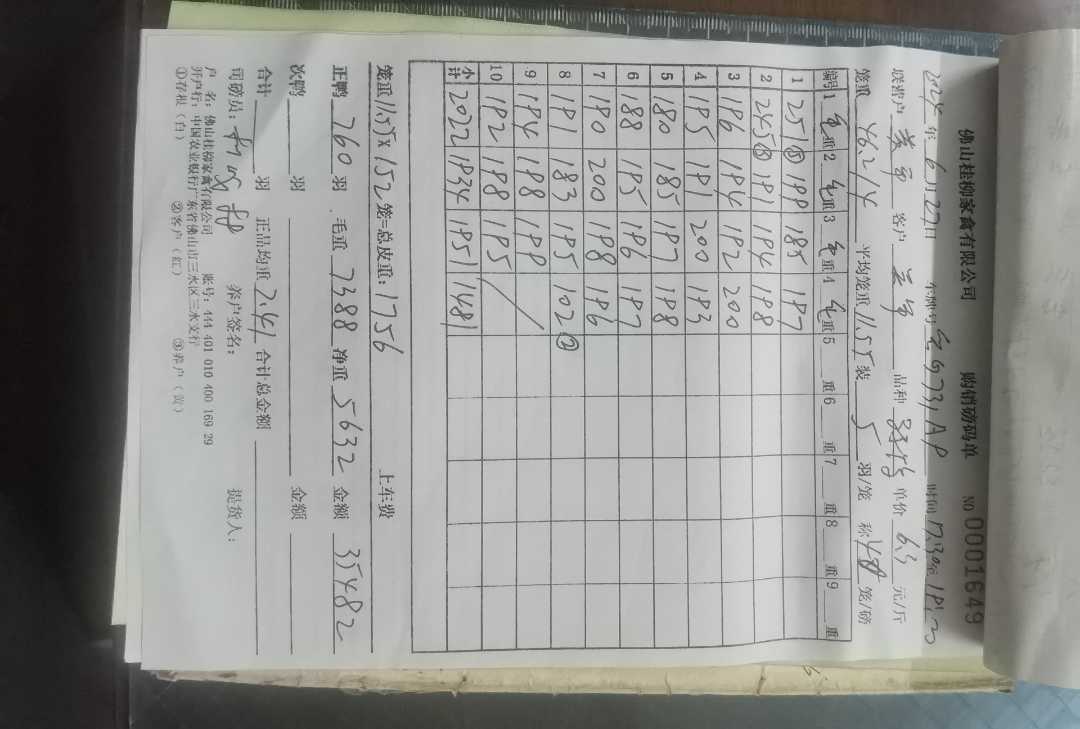 佛山桂柳家禽有限公司 购销磅码单 NO 0001649
年 6月27日 车牌号 时间 17:30至19:20
联营户 客户 品种 单价 6.3 元/斤
笼重 46.2/4 平均笼重 11.55 装 5 羽/笼 称 4 笼/磅
编号 1 毛重 2 毛重 3 毛重 4 毛重 5 重 6 重 7 重 8 重 9 重
1 251⑤ 198 185 197
2 245⑤ 191 194 198
3 196 194 192 200
4 195 191 200 193
5 180 185 197 198
6 188 195 196 197
7 190 200 198 196
8 191 183 195 102②
9 194 198 199
10 192 198 195
小计 2022 1934 1951 1481
笼重 11.55 × 152 笼=总皮重: 1756 上车费
正鸭 760 羽 毛重 7388 净重 5632 金额 35482
次鸭 羽 金额
合计 羽 正品均重 7.41 合计总金额
司磅员: 养户签名: 提货人:
户 名: 佛山桂柳家禽有限公司 账号: 444 401 010 400 169 29
开户行: 中国农业银行广东省佛山市三水区三水支行
①存根(白) ②客户(红) ③养户(黄)